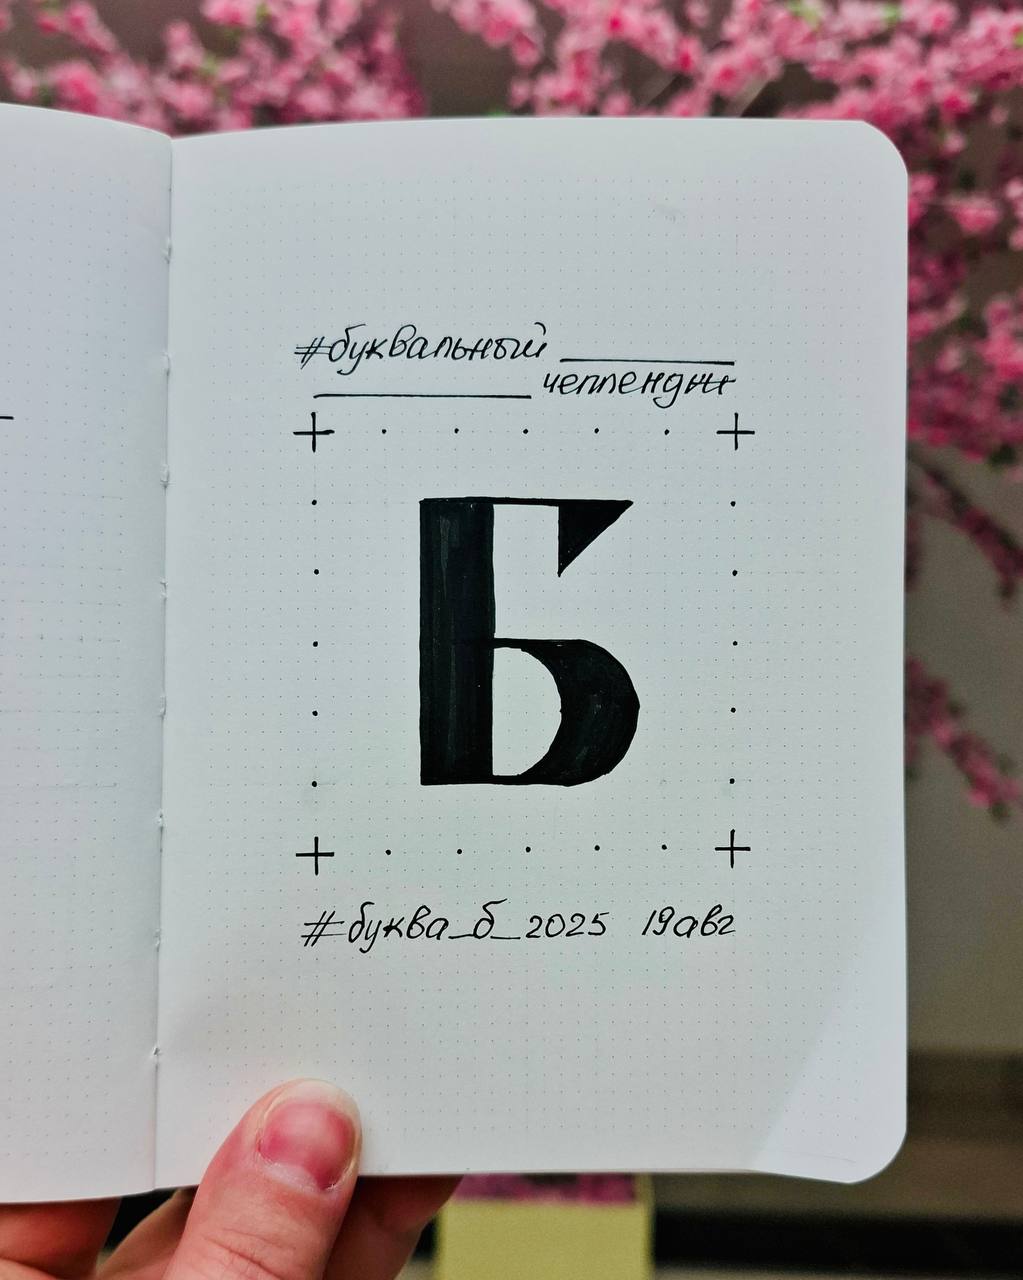 #буквальный
челлендж
Б
#буква_б_2025 19авг